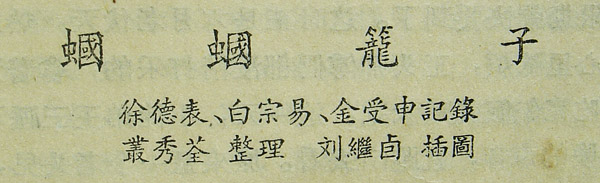 蟈蟈籠子
徐德表、白宗易、金受申記錄
叢秀荃 整理 刘繼卣 插圖